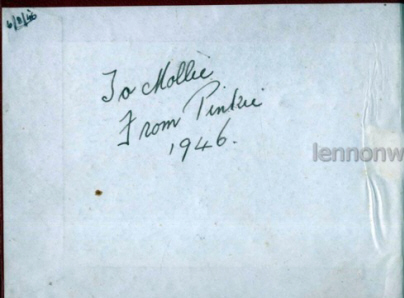 To Mollie
From Pinkie
1946.
lennonw